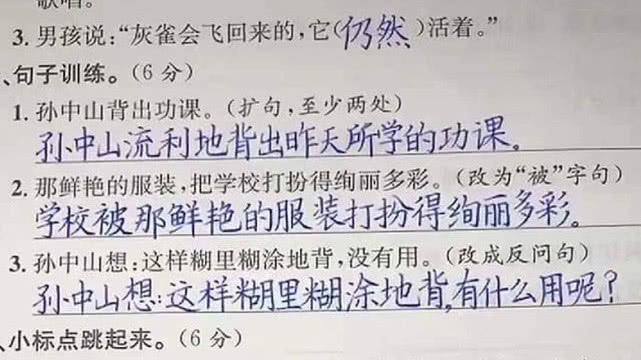 歌唱。
3. 男孩说：“灰雀会飞回来的，它（仍然）活着。”
、句子训练。（6分）
1. 孙中山背出功课。（扩句，至少两处）
孙中山流利地背出昨天所学的功课。
2. 那鲜艳的服装，把学校打扮得绚丽多彩。（改为“被”字句）
学校被那鲜艳的服装打扮得绚丽多彩。
3. 孙中山想：这样糊里糊涂地背，没有用。（改成反问句）
孙中山想：这样糊里糊涂地背，有什么用呢？
、小标点跳起来。（6分）